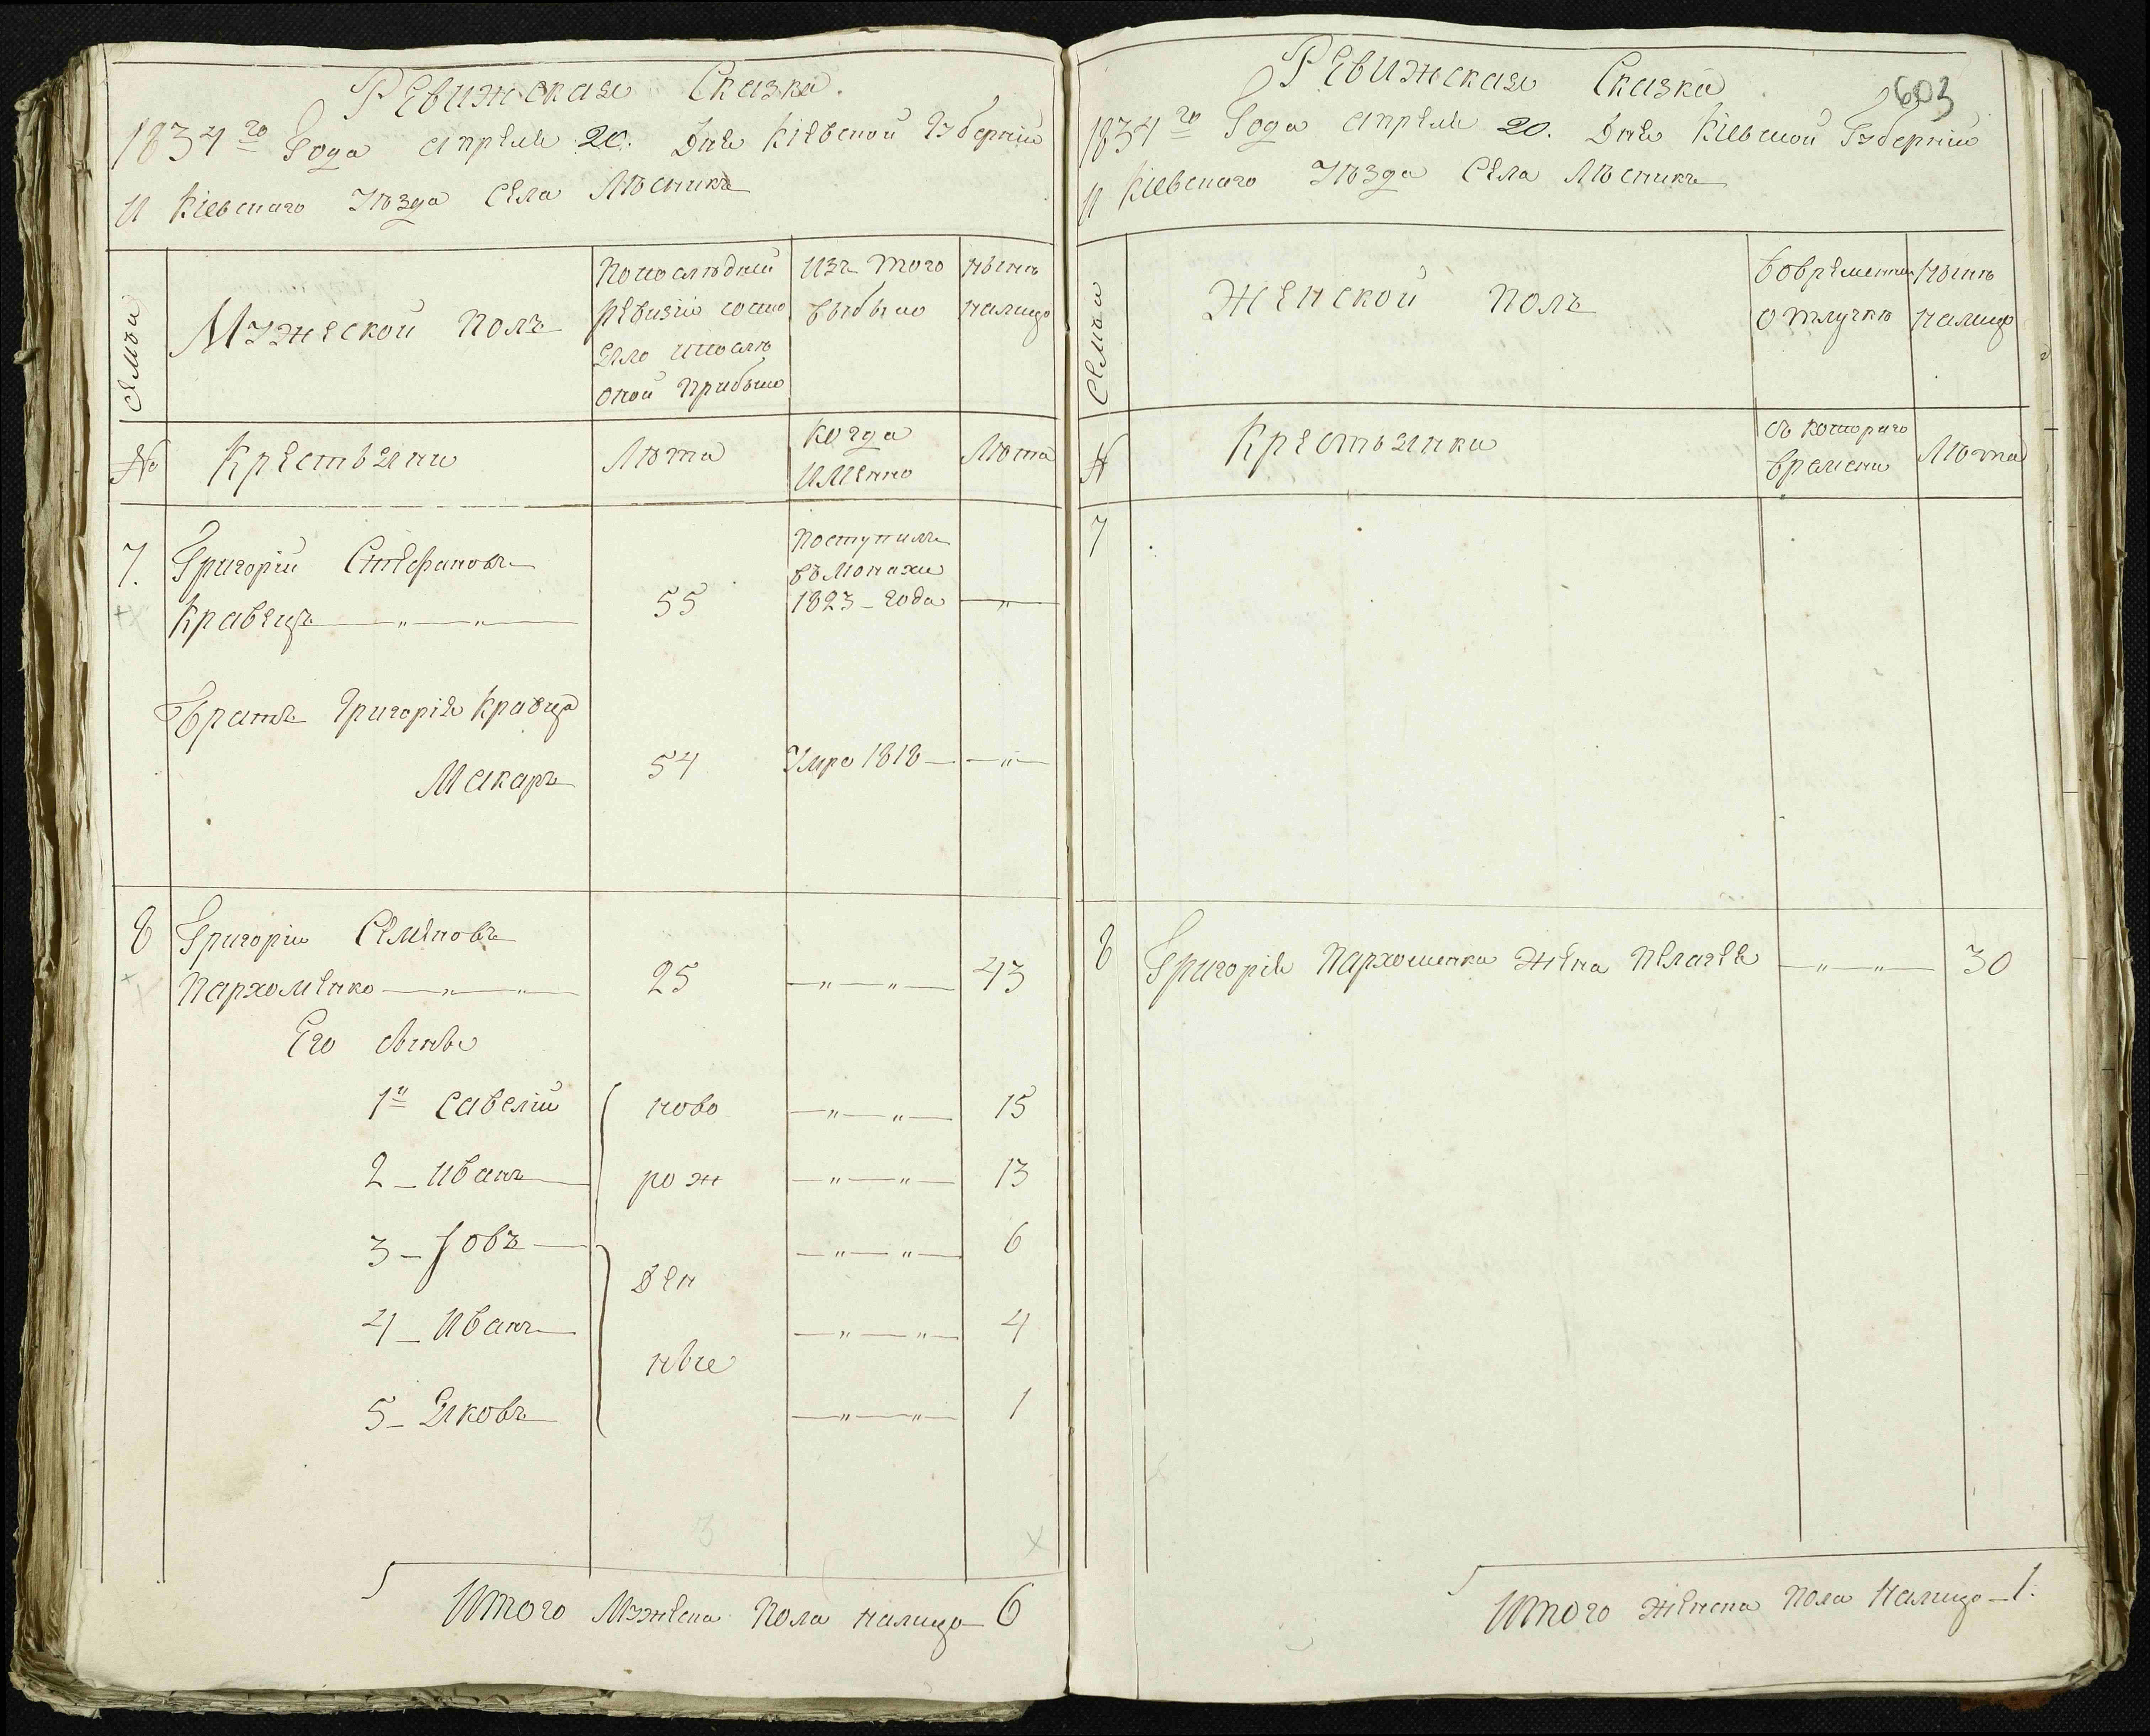 Ревижская Сказка.
1834го Года апреля 20. Дня Кіевской Губерніи
И Кіевскаго Уѣзда Села Лѣсникъ
Семьи
Мужеской полъ
Попослѣдней
ревизіи состо
яло ипослѣ
оной прибыло
Изъ того
выбыло
нынѣ
налицо
№
Крестьяни
Лѣта
Когда
Именно
Лѣта
7.
Григорій Стефановъ
Кравецъ
55
Поступилъ
въ Монахи
1823 года
Братъ Григорія Кравца
Макаръ
54
Умре 1818
8
Григорій Семеновъ
Пархоменко
25
43
Его сыны
1й Савелій
ново
15
2 Иванъ
рож
13
3 Іовъ
6
ден
4 Иванъ
4
ные
5 Яковъ
1
Итого Мужеска Пола налицо 6
603
Ревижская Сказка
1834го Года апреля 20. Дня Кіевской Губерніи
И Кіевскаго Уѣзда Села Лѣсникъ
Семьи
Женской полъ
Вовременной
отлучкѣ
Нынѣ
налицо
№
Крестьянки
съ котораго
времени
Лѣта
7
8
Григорія Пархоменка жена Пелагея
30
Итого женска Пола Налицо 1.